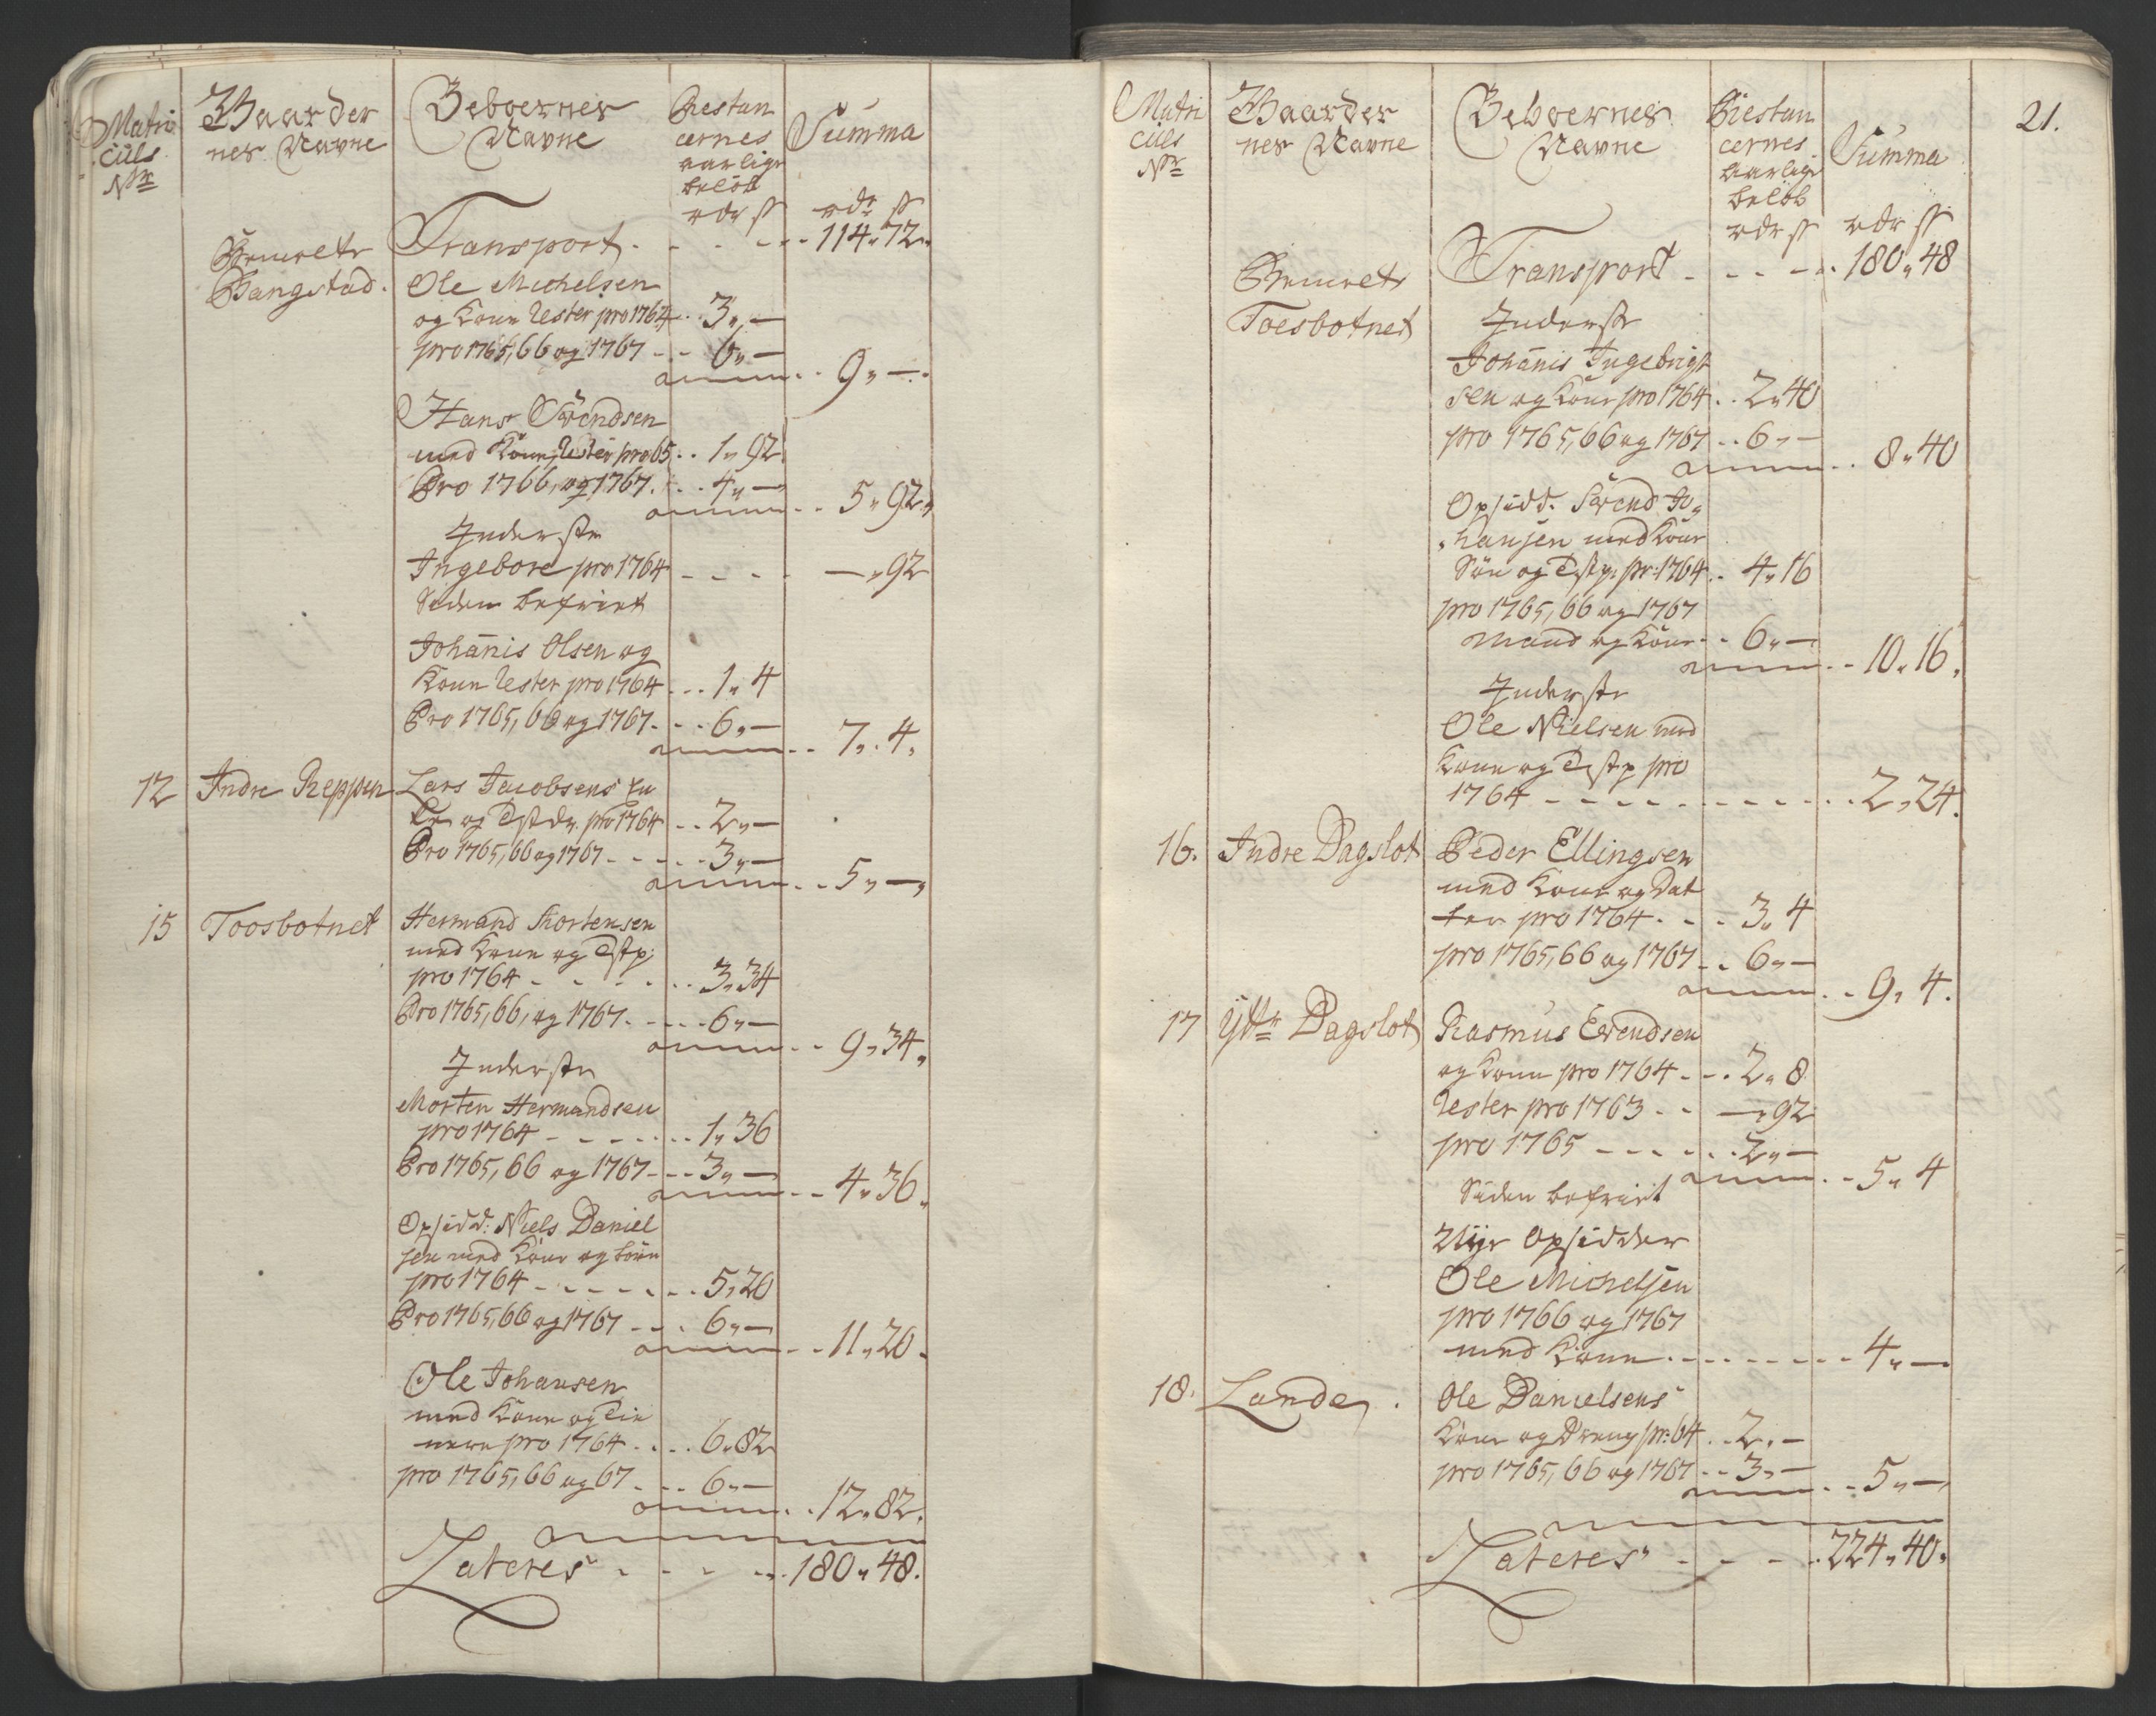 Matri
culs
Nr
Gaarder
nes Navne
Beboernes
Navne
Restan
cernes
aarlige
beløb
rdr ß
Summa
rdr ß
Transport - - - - 114 " 72 "
Bemelte
Bangstad.
Ole Michelsen
og Kone Rester pro 1764 .. 3 " —
pro 1765, 66 og 1767 - - 6 " —
9 " —
Hans Svendsen
med Kone, Rester pro 65 .. 1 " 92
Pro 1766, og 1767. . . 4 " —
5 " 92 "
Inderste
Ingebore pro 1764 - - - - — " 92
Siden befriet
Johanis Olsen og
Kone Rester pro 1764 ... 1 " 4
Pro 1765, 66 og 1767. - - 6 " —
7 " 4 "
12 Indre Reppen Lars Jacobsens En
ke og pro 1764 .. 2 " —
Pro 1765, 66 og 1767 - - - - 3 " —
5 " — "
15 Toosbotnet Hermand Mortensen
med Kone og Tstp:
pro 1764 - - - - - 3 " 34
Pro 1765, 66, og 1767. - - - 6 " —
9 " 34 "
Inderste
Morten Hermandsen
pro 1764 - - - - - 1 " 36
Pro 1765, 66 og 1767 - - - 3 " —
4 " 36 "
Opsidd: Niels Daniel
sen med Kone og
pro 1764 - - - - - - 5 " 20
Pro 1765, 66 og 1767 - - - 6 " —
11 " 20 -
Ole Johansen
med Kone og Tie
nere pro 1764 - - - 6 " 82
pro 1765, 66 og 67 - - - 6 " —
12 " 82 .
Lateres - - - - 180 " 48 .
21.
Matri
culs
Nr
Gaarder
nes Navne
Beboernes
Navne
Restan
cernes
aarlige
beløb
rdr ß
Summa
rdr ß
Transport - - - - 180 " 48
Bemelte
Toesbotnet
Inderste
Johanis Ingebrigt
sen og Kone pro 1764 .. 2 " 40
pro 1765, 66 og 1767 .. 6 " —
8 " 40
Opsidd. Svend Jo "
" hansen med Kone
Søn og Tstp: pr: 1764 .. 4 " 16
pro 1765, 66 og 1767
Mand og Kone - - 6 " —
10 " 16 "
Inderste
Ole Nielsen med
Kone og Tstp pro
1764 - - - - - - - - - - - 2 " 24 .
16. Indre Dagslot Peder Ellingsen
med Kone og Dat
ter pro 1764 . - - 3 " 4
pro 1765, 66 og 1767 . . 6 " —
9 " 4 .
17 Ytr Dagslot Rasmus Evendsen
og Kone pro 1764 - - . 2 " 8
Rester pro 1763 - - — " 92
pro 1765 - - - - - - 2 " —
5 " 4
Siden befriet
Nye Opsidder
Ole Michelsen
pro 1766 og 1767
med Kone . - - - - - - - - 4 " —
18. Lande . Ole Danielsens
Kone og Dreng pr: 64 .. 2 " —
pro 1765, 66 og 1767 .. 3 " —
5 " —
Lateres - - - - 224 " 40 "